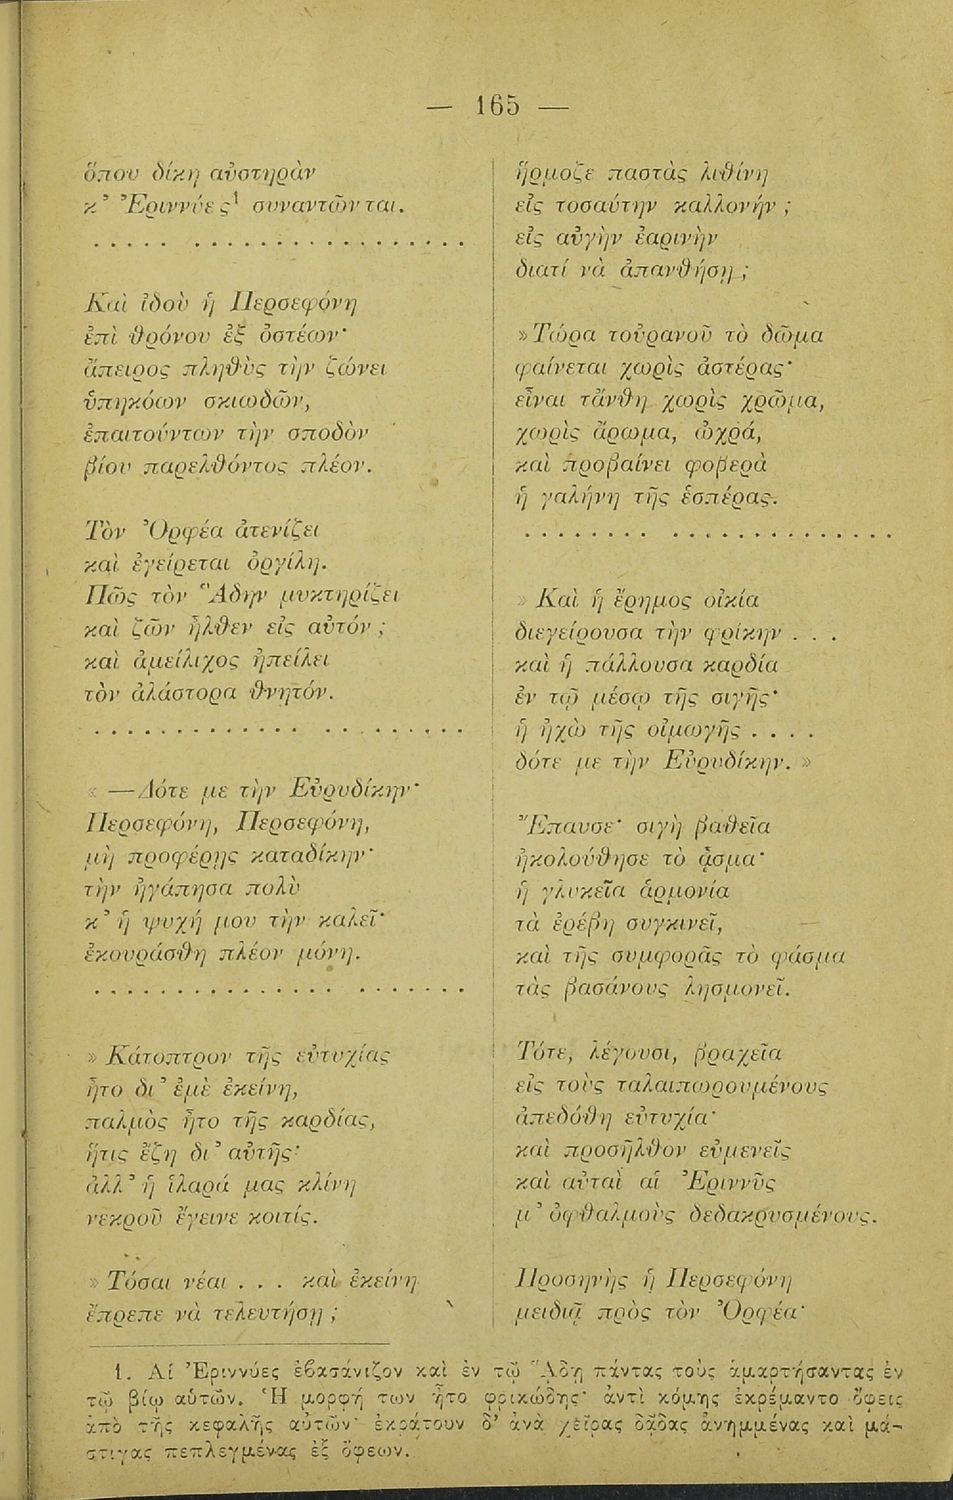 — 165 —
ὅπου δίκη αὐστηρὰν
κ’ Ἐριννύες¹ συναντῶνται.
..... .................
Καὶ ἰδοὺ ἡ Περσεφόνη
ἐπὶ θρόνου ἐξ ὀστέων·
ἄπειρος πληθὺς τὴν ζώνει
ὑπηκόων σκιωδῶν,
ἐπαιτούντων τὴν σποδὸν
βίου παρελθόντος πλέον.
Τὸν Ὀρφέα ἀτενίζει
καὶ ἐγείρεται ὀργίλη.
Πῶς τὸν Ἅδην μυκτηρίζει
καὶ ζῶν ἦλθεν εἰς αὐτόν ;
καὶ ἀμείλιχος ἠπείλει
τὸν ἀλάστορα θνητόν.
............... .......
« —Δότε με τὴν Εὐρυδίκην·
Περσεφόνη, Περσεφόνη,
μὴ προφέρῃς καταδίκην·
τὴν ἠγάπησα πολὺ
κ’ ἡ ψυχή μου τὴν καλεῖ·
ἐκουράσθη πλέον μόνη.
................. .......
» Κάτοπτρον τῆς εὐτυχίας
ἦτο δι’ ἐμὲ ἐκείνη,
παλμὸς ἦτο τῆς καρδίας,
ἥτις ἔζη δι’ αὐτῆς·
ἀλλ’ ἡ ἱλαρά μας κλίνη
νεκροῦ ἔγεινε κοιτίς.
» Τόσαι νέαι . . . καὶ ἐκείνη
ἔπρεπε νὰ τελευτήσῃ ;
ἥρμοζε παστὰς λιθίνη
εἰς τοσαύτην καλλονήν ;
εἰς αὐγὴν ἐαρινὴν
διατί νὰ ἀπανθήσῃ ;
» Τώρα τοὐρανοῦ τὸ δῶμα
φαίνεται χωρὶς ἀστέρας·
εἶναι τἄνθη χωρὶς χρῶμα,
χωρὶς ἄρωμα, ὠχρά,
καὶ προβαίνει φοβερὰ
ἡ γαλήνη τῆς ἑσπέρας.
......... .............
» Καὶ ἡ ἔρημος οἰκία
διεγείρουσα τὴν φρίκην . . .
καὶ ἡ πάλλουσα καρδία
ἐν τῷ μέσῳ τῆς σιγῆς·
ἡ ἠχὼ τῆς οἰμωγῆς . . . .
δότε με τὴν Εὐρυδίκην. »
Ἔπαυσε· σιγὴ βαθεῖα
ἠκολούθησε τὸ ᾆσμα·
ἡ γλυκεῖα ἁρμονία
τὰ ἐρέβη συγκινεῖ,
καὶ τῆς συμφορᾶς τὸ φάσμα
τὰς βασάνους λησμονεῖ.
Τότε, λέγουσι, βραχεῖα
εἰς τοὺς ταλαιπωρουμένους
ἀπεδόθη εὐτυχία·
καὶ προσῆλθον εὐμενεῖς
καὶ αὐταὶ αἱ Ἐριννῦς
μ’ ὀφθαλμοὺς δεδακρυσμένους.
Προσηνὴς ἡ Περσεφόνη
μειδιᾷ πρὸς τὸν Ὀρφέα·
1. Αἱ Ἐριννύες ἐβασάνιζον καὶ ἐν τῷ Ἅδῃ πάντας τοὺς ἁμαρτήσαντας ἐν
τῷ βίῳ αὐτῶν. Ἡ μορφή των ἦτο φρικώδης· ἀντὶ κόμης ἐκρέμαντο ὄφεις
ἀπὸ τῆς κεφαλῆς αὐτῶν· ἐκράτουν δ’ ἀνὰ χεῖρας δᾷδας ἀνημμένας καὶ μά-
στιγας πεπλεγμένας ἐξ ὄφεων.